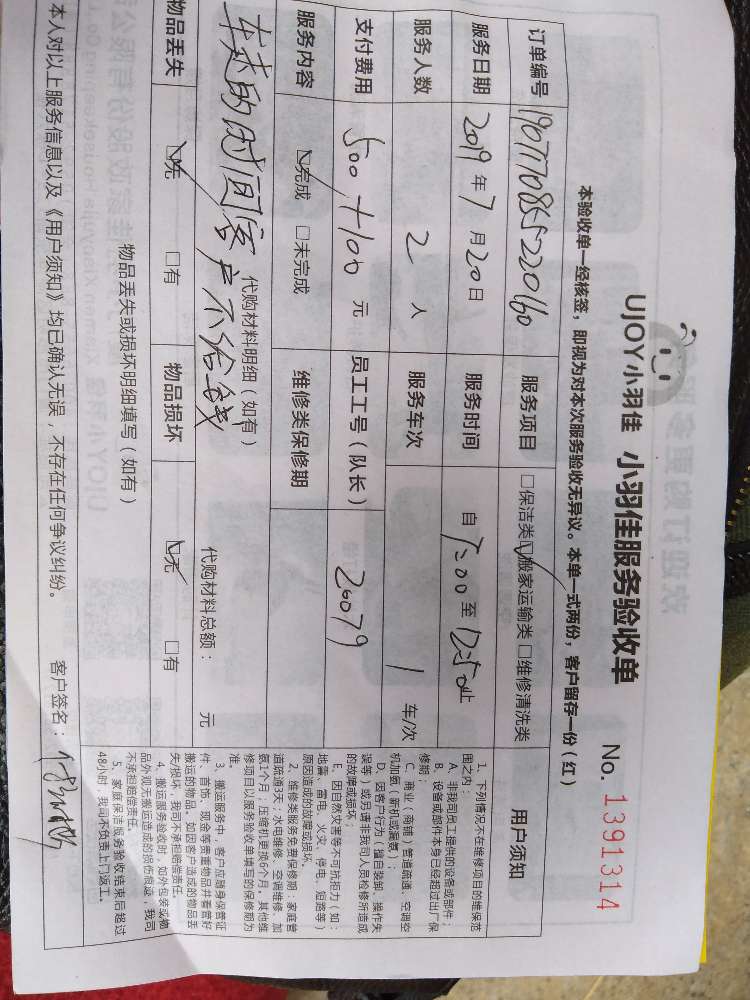 UJOY小羽佳 小羽佳服务验收单 No. 1391314
本验收单一经核签，即视为对本次服务验收无异议。本单一式两份，客户留存一份（红）
订单编号 190717085522060 服务项目 □保洁类☑搬家运输类 □维修清洗类
服务日期 2019 年 7 月 20 日 服务时间 自 7:00 至 12:50 止
服务人数 2 人 服务车次 1 车/次
支付费用 500+100 元 员工工号（队长） 26079
服务内容 ☑完成 □未完成 维修类保修期
代购材料明细（如有） 代购材料总额： 元
车走的时间客户不给钱
物品丢失 ☑无 □有 物品损坏 ☑无 □有
物品丢失或损坏明细填写（如有）
本人对以上服务信息以及《用户须知》均已确认无误，不存在任何争议纠纷。 客户签名：
用户须知
1、下列情况不在维修项目的维保范
围之内：
A、非我司员工提供的设备或部件；
B、设备或部件本身已经超过出厂保
修期；
C、商业（商铺）管道疏通、空调空
机加氨（新机或漏氨）；
D、因客户行为（擅自垫卸、操作失
误等）或另请非我司人员检修所造成
的故障或损坏；
E、因自然灾害等不可抗拒力（如：
地震、雷电、火灾、停电、短路等）
原因造成的故障或损坏。
2、维修类服务免费保修期：家庭管
道疏通3天；水电维修、空调维修、加
氨1个月；压缩机更换6个月，其他维
修项目以服务验收单填写的保修期为
准。
3、搬运服务中，客户应随身保管证
件、首饰、现金等贵重物品并看管好
搬运的物品。如因客户造成的物品丢
失/损坏，我司不承担赔偿责任。
4、搬运服务验收时，如外包装或物
品外观无搬运造成的损伤痕迹，我司
不承担赔偿责任。
5、家庭保洁服务验收结束后超过
48小时，我司不负责上门返工。